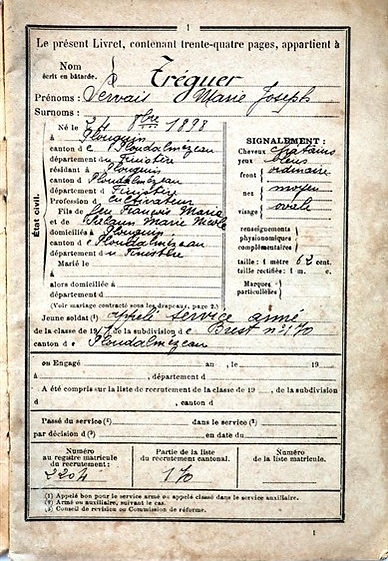 1
Le présent Livret, contenant trente-quatre pages, appartient à
Nom Tréguer
écrit en bâtarde.
Prénoms : Servais Marie Joseph
Surnoms :
Né le 24 8bre 1898
à Plouguin
canton de Ploudalmézeau
département du Finistère
résidant à Plouguin
canton de Ploudalmézeau
département du Finistère
Profession de Cultivateur
Fils de feu François Marie
et de Marie Nicole
domiciliés à Plouguin
canton de Ploudalmézeau
département du Finistère
Marié le
à
alors domiciliée à
département d
(Voir mariage contracté sous les drapeaux, page 2.)
État civil.
SIGNALEMENT :
Cheveux châtains
yeux bleus
front ordinaire
nez moyen
visage ovale
renseignements
physionomiques
complémentaires
taille : 1 mètre 62 cent.
taille rectifiée : 1 m. c.
Marques
particulières
Jeune soldat (1) appelé service armé
de la classe de 19 de la subdivision de Brest n° 170
canton de Ploudalmézeau
ou Engagé au , le 19
à , département d
A été compris sur la liste de recrutement de la classe de 19 , de la subdivision
d , canton d
Passé du service (2) dans le service (2)
par décision d (3) en date du
Numéro
au registre matricule
du recrutement :
2204
Partie de la liste
du recrutement cantonal.
170
Numéro
de la liste matricule.
(1) Appelé bon pour le service armé ou appelé classé dans le service auxiliaire.
(2) Armé ou auxiliaire, suivant le cas.
(3) Conseil de revision ou Commission de réforme.
1